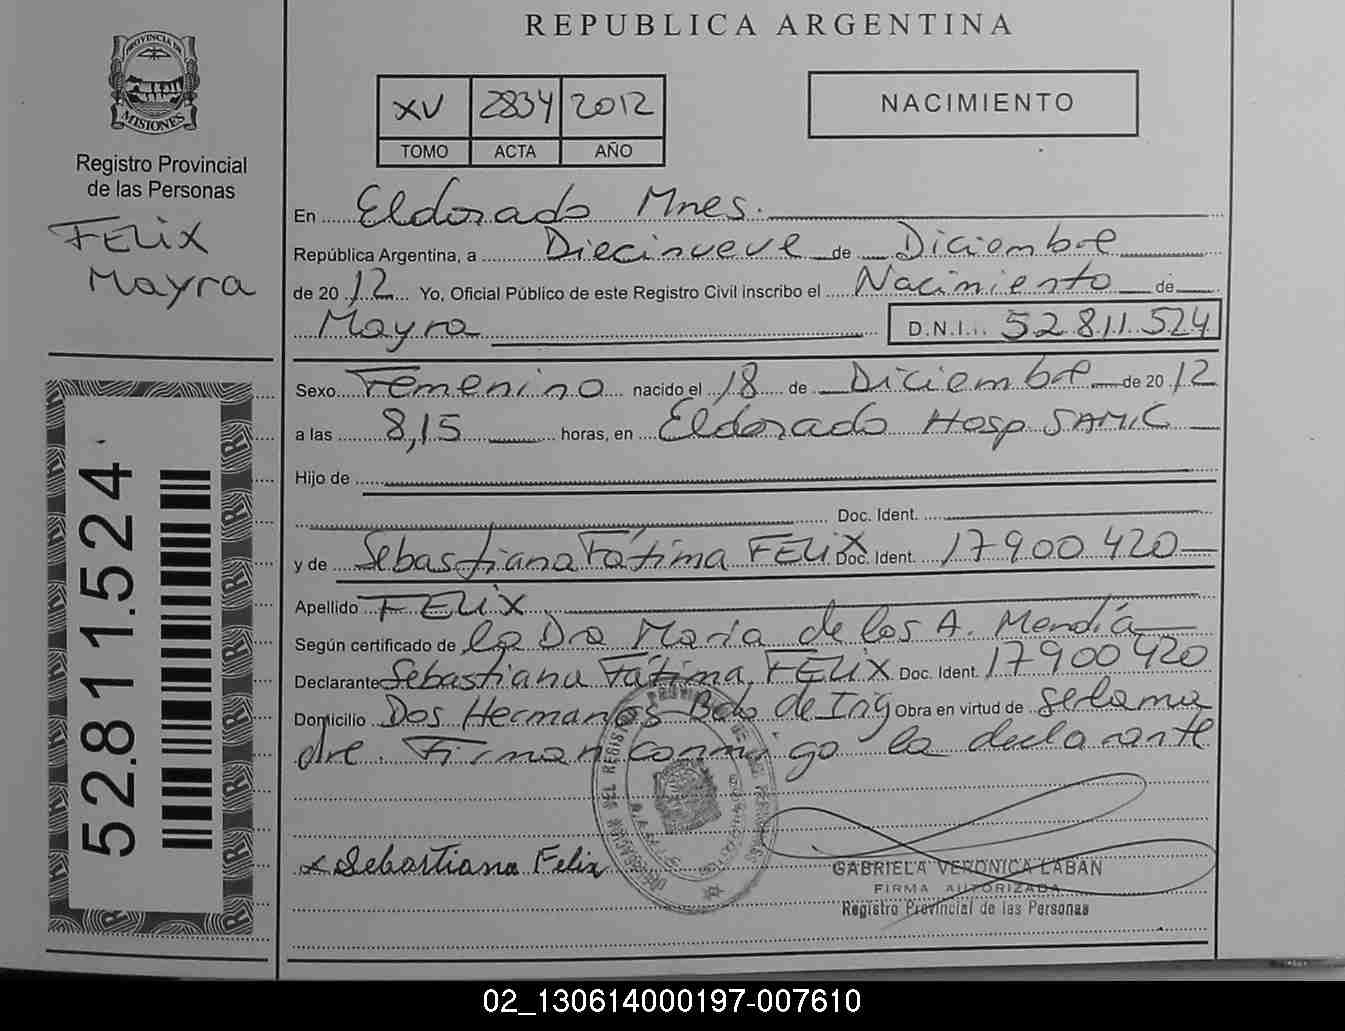 REPUBLICA ARGENTINA
PROVINCIA DE
MISIONES
Registro Provincial
de las Personas
FELIX
Mayra
XV 2834 2012
TOMO ACTA AÑO
NACIMIENTO
En Eldorado Mnes.
República Argentina, a Diecinueve de Diciembre
de 2012 Yo, Oficial Público de este Registro Civil inscribo el Nacimiento de
Mayra D.N.I. 52 811 524
Sexo Femenino nacido el 18 de Diciembre de 2012
a las 8,15 horas, en Eldorado Hosp SAMIC
Hijo de
Doc. Ident.
y de Sebastiana Fátima FELIX Doc. Ident. 17900420
Apellido FELIX
Según certificado de la Dra Maria de los A. Mendía
Declarante Sebastiana Fátima FELIX Doc. Ident. 17900420
Domicilio Dos Hermanos Bdo de Irig Obra en virtud de ser la ma
dre. Firman conmigo la declarante
x Sebastiana Felix
GABRIELA VERONICA LABAN
FIRMA AUTORIZADA
Registro Provincial de las Personas
52.811.524
02_130614000197-007610